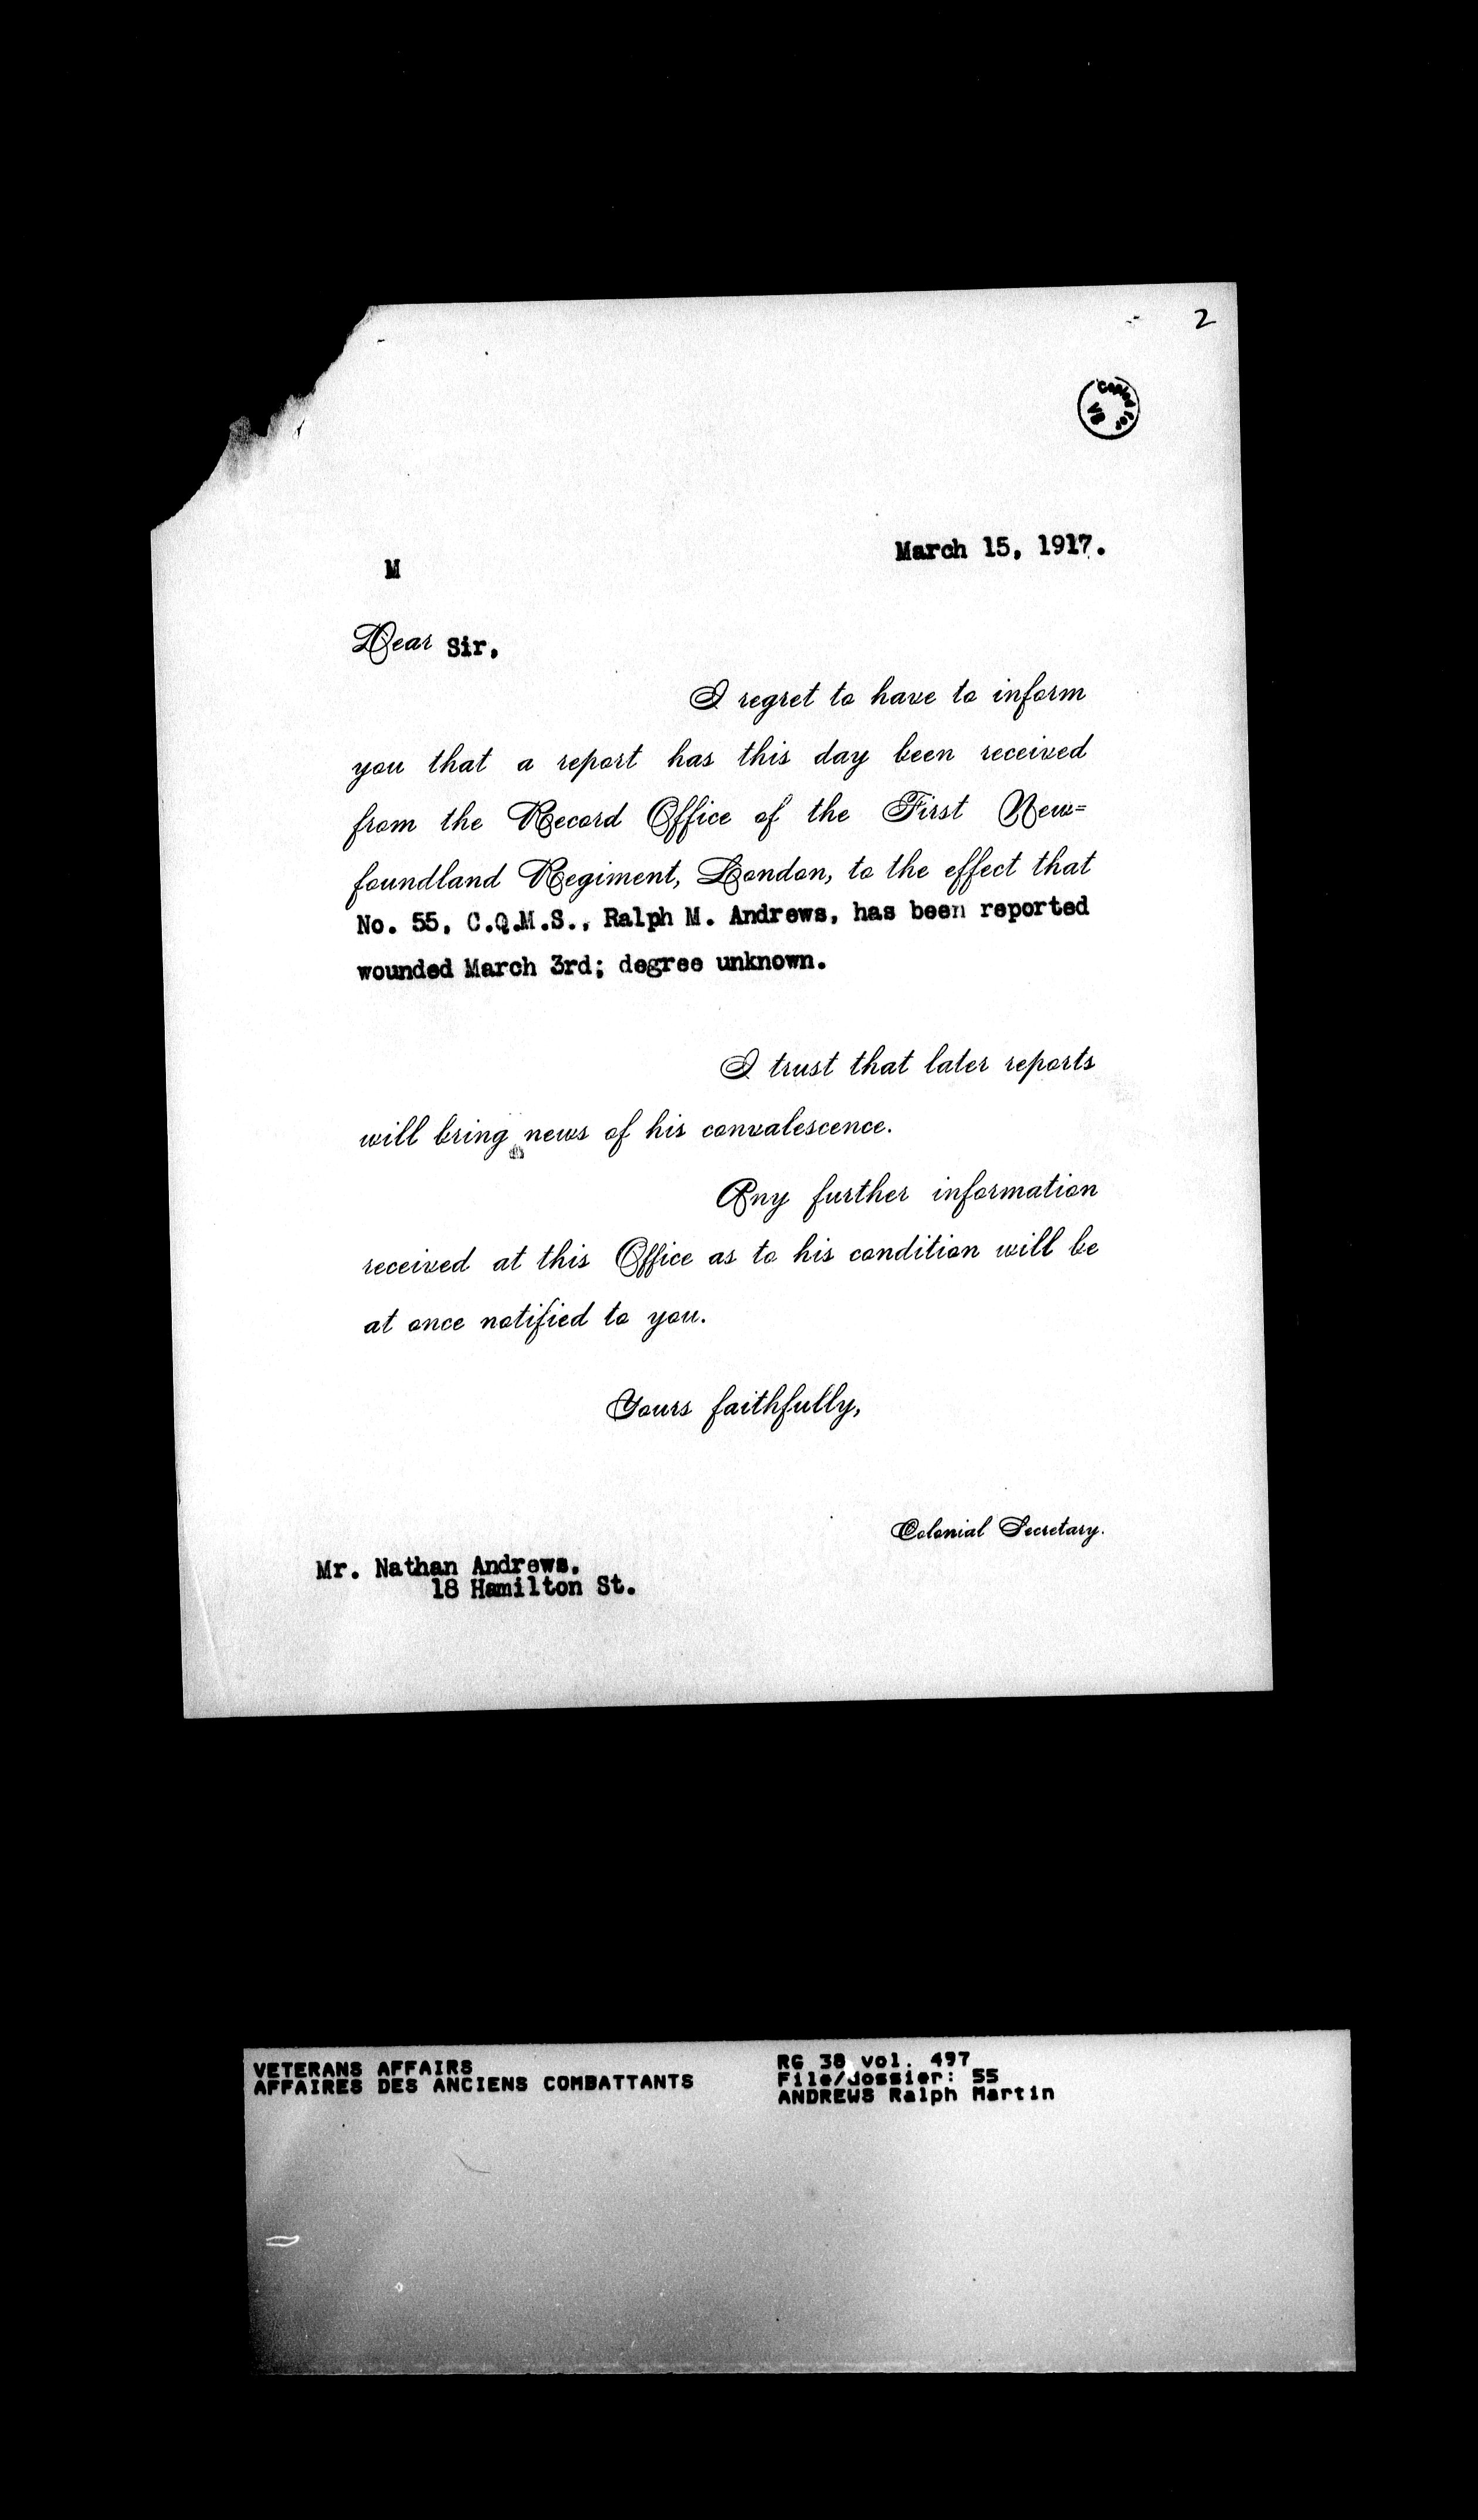 2
Copied for
March 15, 1917.
M
Dear Sir,
I regret to have to inform
you that a report has this day been received
from the Record Office of the First New=
foundland Regiment, London, to the effect that
No. 55, C.Q.M.S., Ralph M. Andrews, has been reported
wounded March 3rd; degree unknown.
I trust that later reports
will bring news of his convalescence.
Any further information
received at this Office as to his condition will be
at once notified to you.
Yours faithfully,
Colonial Secretary.
Mr. Nathan Andrews,
18 Hamilton St.
VETERANS AFFAIRS
AFFAIRES DES ANCIENS COMBATTANTS
RG 38 vol. 497
File/dossier: 55
ANDREWS Ralph Martin